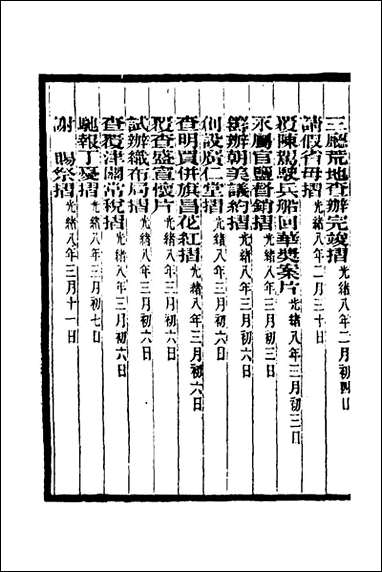 三廳荒地查辦完竣摺 光緒八年二月初四日
請假省母摺 光緒八年二月三十日
覆陳駕駛兵船回華獎案片 光緒八年三月初二日
永屬官鹽督銷摺 光緒八年三月初三日
籌辦朝美議約摺 光緒八年三月初六日
創設廣仁堂摺 光緒八年三月初六日
查明買併旗昌花紅摺 光緒八年三月初六日
覆查盛宣懷片 光緒八年三月初六日
試辦織布局摺 光緒八年三月初六日
查覆津關常稅摺 光緒八年三月初六日
馳報丁憂摺 光緒八年三月初七日
謝 賜祭摺 光緒八年三月十一日